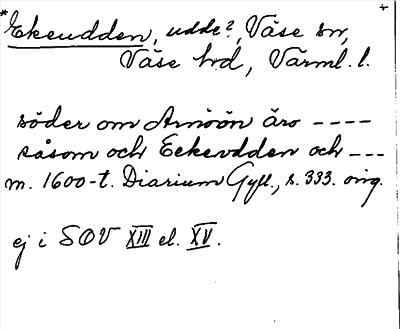 *Ekeudden, udde?, Väse sn,
Väse hrd, Värml. l.
söder om Arnöön äro ----
såsom och Eekevdden och ---
m. 1600-t. Diarium Gyll., s. 333. orig.
ej i SOV XIII el. XV.